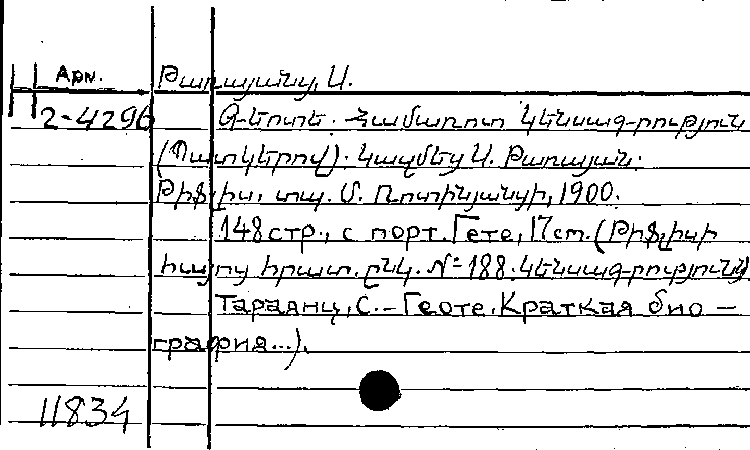 Арм.
Թառայանց, Ս.
2-4296
Գեոտե. Համառոտ կենսագրություն
(Պատկերով). Կազմեց Ս. Թառայան:
Թիֆլիս, տպ. Մ. Ռոտինյանցի, 1900.
148 стр., с порт. Гете, 17 см. (Թիֆլիսի
հայոց հրատ. ընկ. № 188. Կենսագրությունը)
Тараянц, С. – Геоте. Краткая био –
графия...).
11834